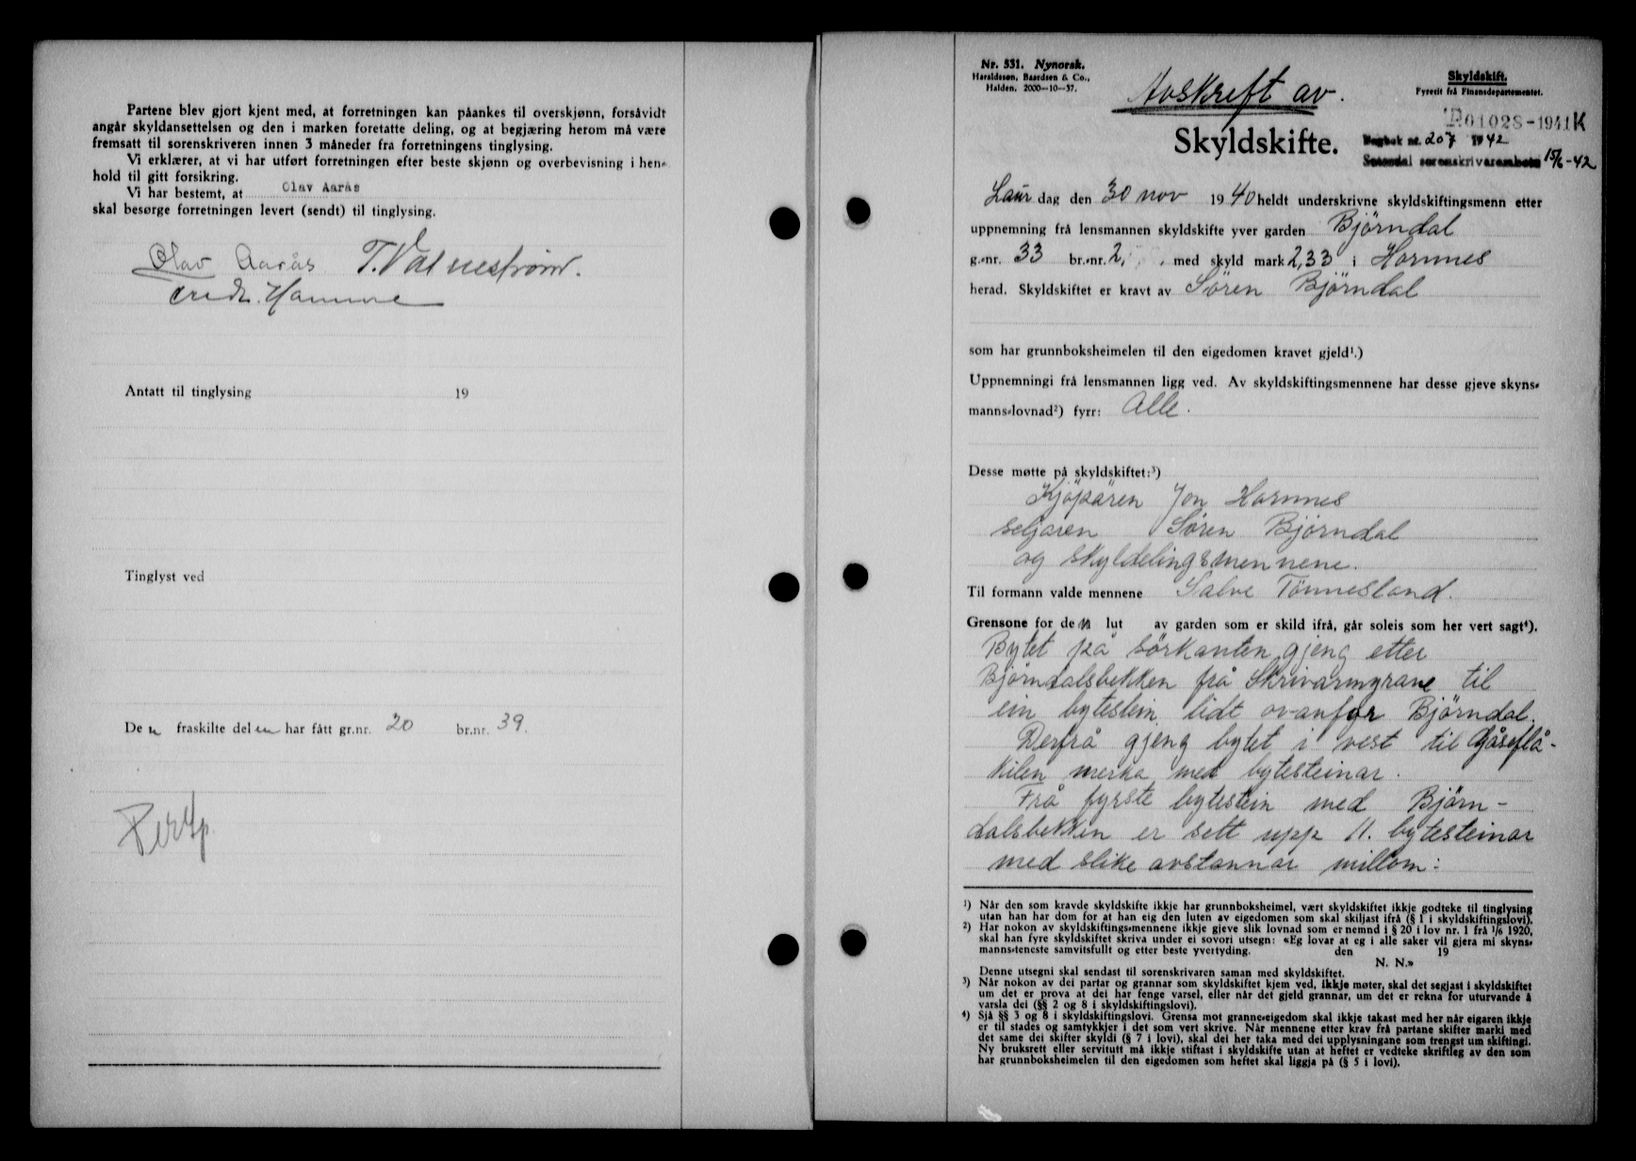 Partene blev gjort kjent med, at forretningen kan påankes til overskjønn, forsåvidt
angår skyldansettelsen og den i marken foretatte deling, og at begjæring herom må være
fremsatt til sorenskriveren innen 3 måneder fra forretningens tinglysing.
Vi erklærer, at vi har utført forretningen efter beste skjønn og overbevisning i hen-
hold til gitt forsikring.
Vi har bestemt, at Olav Aarås
skal besørge forretningen levert (sendt) til tinglysing.
Olav Aarås T. Valnestrøm.
Antatt til tinglysing 19
Tinglyst ved
De n fraskilte delen har fått gr.nr. 20 br.nr. 39.
Nr. 331. Nynorsk.
Haraldssen, Baardsen & Co.,
Halden. 2000—10—37.
Avskrift av.
Skyldskifte.
Skyldskift.
Fyreskt frå Finansdepartementet.
01028-1941K
Dagbok nr. 207 1942
Setesdal sorenskrivarembete 15/6-42
Laur dag den 30 nov 1940 heldt underskrivne skyldskiftingsmenn etter
uppnemning frå lensmannen skyldskifte yver garden Björndal
g.-nr. 33 br.-nr. 2, med skyld mark 2,33 i Hornnes
herad. Skyldskiftet er kravt av Sören Björndal
som har grunnboksheimelen til den eigedomen kravet gjeld¹.)
Uppnemningi frå lensmannen ligg ved. Av skyldskiftingsmennene har desse gjeve skyns-
manns-lovnad²) fyrr: Alle.
Desse møtte på skyldskiftet:³)
Kjöparen Jon Hornnes
seljaren Sören Björndal
og skyldelingsmennene.
Til formann valde mennene Salve Tönnesland.
Grensone for den lut av garden som er skild ifrå, går soleis som her vert sagt⁴).
Bytet på sörkanten gjeng etter
Björndalsbekken frå Skrivarmyrane til
ein bytestein lidt ovanfor Björndal.
Derfrå gjeng bytet i vest til Gåseflå-
kilen merka med bytesteinar.
Frå fyrste bytestein med Björn-
dalsbekken er sett upp 11. bytesteinar
med slike avstannar millom:
¹) Når den som kravde skyldskifte ikkje har grunnboksheimel, vært skyldskiftet ikkje godteke til tinglysing
utan han har dom for at han eig den luten av eigedomen som skal skiljast ifrå (§ 1 i skyldskiftingslovi).
²) Har nokon av skyldskiftings-mennene ikkje gjeve slik lovnad som er nemnd i § 20 i lov nr. 1 frå 1/6 1920,
skal han fyre skyldskiftet skriva under ei sovori utsegn: «Eg lovar at eg i alle saker vil gjera mi skyns-
manns-teneste samvitsfullt og etter beste yvertyding. den 19
N. N.»
Denne utsegni skal sendast til sorenskrivaren saman med skyldskiftet.
³) Når nokon av dei partar og grannar som skyldskiftet kjem ved, ikkje møter, skal det segjast i skyldskiftet
um det er prova at dei har fenge varsel, eller når det gjeld grannar, um det er rekna for uturvande å
varsla dei (§§ 2 og 8 i skyldskiftingslovi).
⁴) Sjå §§ 3 og 8 i skyldskiftingslovi. Grensa mot granne-eigedom skal ikkje takast med her når eigaren ikkje
er til stades og samtykkjer i det som vert skrive. Når mennene etter krav frå partane skifter marki med
det same dei skifter skyldi (§ 7 i lovi), skal dei her taka med dei upplysningane som trengst um skiftingi.
Ny bruksrett eller servitutt må ikkje stiftast i skyldskifte utan at heftet er vedteke skriftleg av den som
har grunnboksheimelen til den eigedomen som heftet skal liggja på (§ 5 i lovi).